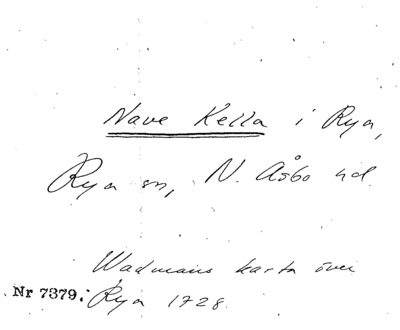 Nave Kella i Rya,
Rya sn, N. Åsbo hd.
Wadmans karta över
Nr 7379. Rya 1728.